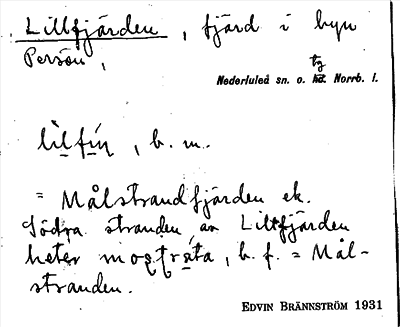 Lillfjärden, fjärd i byn
Persön,
tg
Nederluleå sn. o. hd. Norrb. l.
lilfin, b. m.
= Målstrandfjärden ek.
Södra stranden av Lillfjärden
heter mostrata, b. f. = Mål-
stranden.
EDVIN BRÄNNSTRÖM 1931